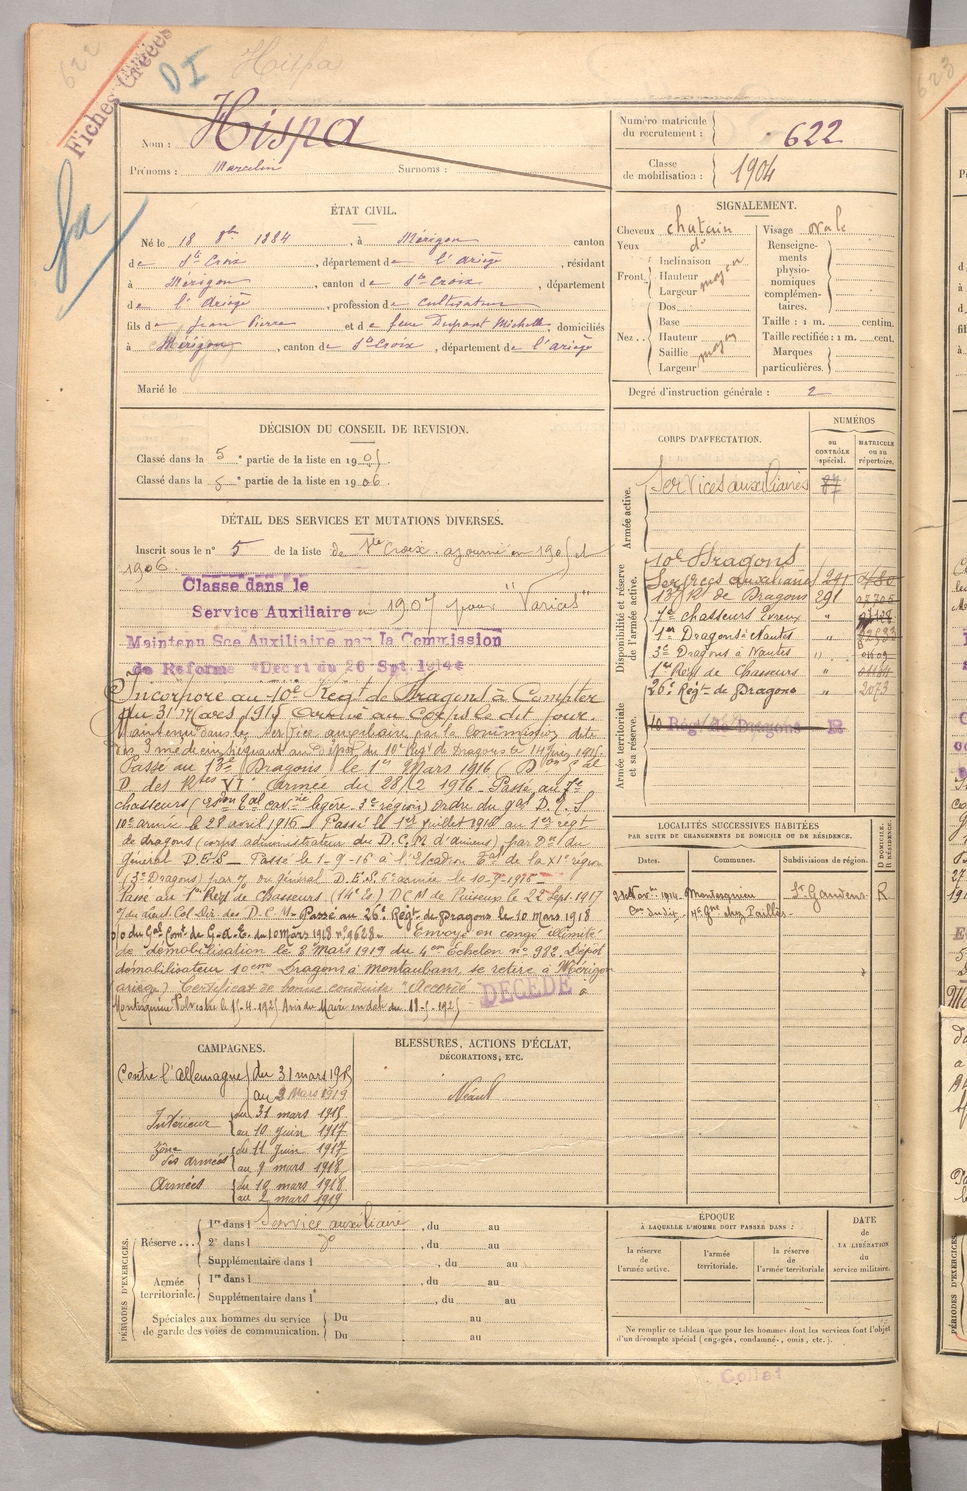 622
Fiches Créées
DI
Hispa
Nom : Hispa
Prénoms : Marcelin Surnoms :
Numéro matricule du recrutement : 622
Classe de mobilisation : 1904
ÉTAT CIVIL.
Né le 18 8bre 1884, à Mérigon canton
de Ste Croix, département de l'Ariège, résidant
à Mérigon, canton de Ste Croix, département
de l'Ariège, profession de Cultivateur
fils de Jean Pierre et de feue Dupont Michelle, domiciliés
à Mérigon, canton de Ste Croix, département de l'Ariège
Marié le
SIGNALEMENT.
Cheveux chatain
Yeux do
Front. Inclinaison
Hauteur
Largeur moyen
Nez... Dos
Base
Hauteur
Saillie moyen
Largeur
Visage ovale
Renseignements physionomiques complémentaires.
Taille : 1 m. centim.
Taille rectifiée : 1 m. cent.
Marques particulières.
Degré d'instruction générale : 2
DÉCISION DU CONSEIL DE REVISION.
Classé dans la 5e partie de la liste en 1905.
Classé dans la 5e partie de la liste en 1906.
DÉTAIL DES SERVICES ET MUTATIONS DIVERSES.
Inscrit sous le no 5 de la liste de Ste Croix. ajourné en 1905 et
1906.
Classé dans le
Service Auxiliaire en 1907 pour "Varices"
Maintenu Sce Auxiliaire par la Commission
de Réforme Décret du 26 Spt. 1914
Incorporé au 10e Régt de Dragons à Compter
du 31 Mars 1915 Arrivé au Corps le dit jour.
Maintenu dans le service auxiliaire par la Commission dite
des 3 médecins
Passé au 13e Dragons le 1er Mars 1916
VIe Armée du 28/2 1916 - Passé au 7e
chasseurs
10e armée le 28 avril 1916 - Passé le 1er juillet 1916 au 1er régt
de dragons (corps administrateur du D.C.M d'amiens) par On du
Général D.E.S - Passé le 1-9-16 à l'Escadron de la XIe région
(3e Dragons) par du général D.E.S. 6e armée le 10-9-1916 -
Passé au 1er Régt de Chasseurs (14e Es) D.C.M de Puiseux le 22 Sept. 1917
Passé au 26e Régt de Dragons le 10 mars 1918
no 9628 - Envoyé en congé illimité
de démobilisation le 8 Mars 1919 du 4em Echelon no 982 Dépôt
démobilisateur 10eme Dragons à Montauban, se retire à Mérigon
(ariège) Certificat de bonne conduite "Accordé"
DÉCÉDÉ à
Montesquieu Volvestre le 15-4-1925 Avis du Maire en date du 11-5-1925
CORPS D'AFFECTATION.
NUMÉROS
au CONTRÔLE spécial.
MATRICULE ou au répertoire.
Armée active.
Services auxiliaires 87
Disponibilité et réserve de l'armée active.
10e Dragons
Ser (Regs auxiliaire) 291
13e Rt de Dragons 291
7e chasseurs Evreux "
1er Dragons à Nantes "
3e Dragons à Nantes "
1er Régt de Chasseurs "
26e Régt de Dragons " 2073
Armée territoriale et sa réserve.
10 Régt de Dragons
LOCALITÉS SUCCESSIVES HABITÉES
PAR SUITE DE CHANGEMENTS DE DOMICILE OU DE RÉSIDENCE.
Dates. Communes. Subdivisions de région. D DOMICILE. R RÉSIDENCE.
Novbre 1914 Montesquieu St Gaudens R
CAMPAGNES.
Contre l'allemagne du 31 mars 1915
au 2 Mars 1919
Intérieur du 31 mars 1915
au 10 juin 1917
Zône des armées du 11 juin 1917
au 9 mars 1918
Armées du 10 mars 1918
au 2 mars 1919
BLESSURES, ACTIONS D'ÉCLAT,
DÉCORATIONS, ETC.
Néant
PÉRIODES D'EXERCICES.
Réserve... 1re dans l Service auxiliaire, du au
2e dans l do, du au
Supplémentaire dans l, du au
Armée territoriale. 1re dans l, du au
Supplémentaire dans l, du au
Spéciales aux hommes du service de garde des voies de communication. Du au
Du au
ÉPOQUE
À LAQUELLE L'HOMME DOIT PASSER DANS :
la réserve de l'armée active.
l'armée territoriale.
la réserve de l'armée territoriale
DATE DE LA LIBÉRATION du service militaire.
Ne remplir ce tableau que pour les hommes dont les services font l'objet
d'un décompte spécial (engagés, condamnés, omis, etc.).
Collat
623